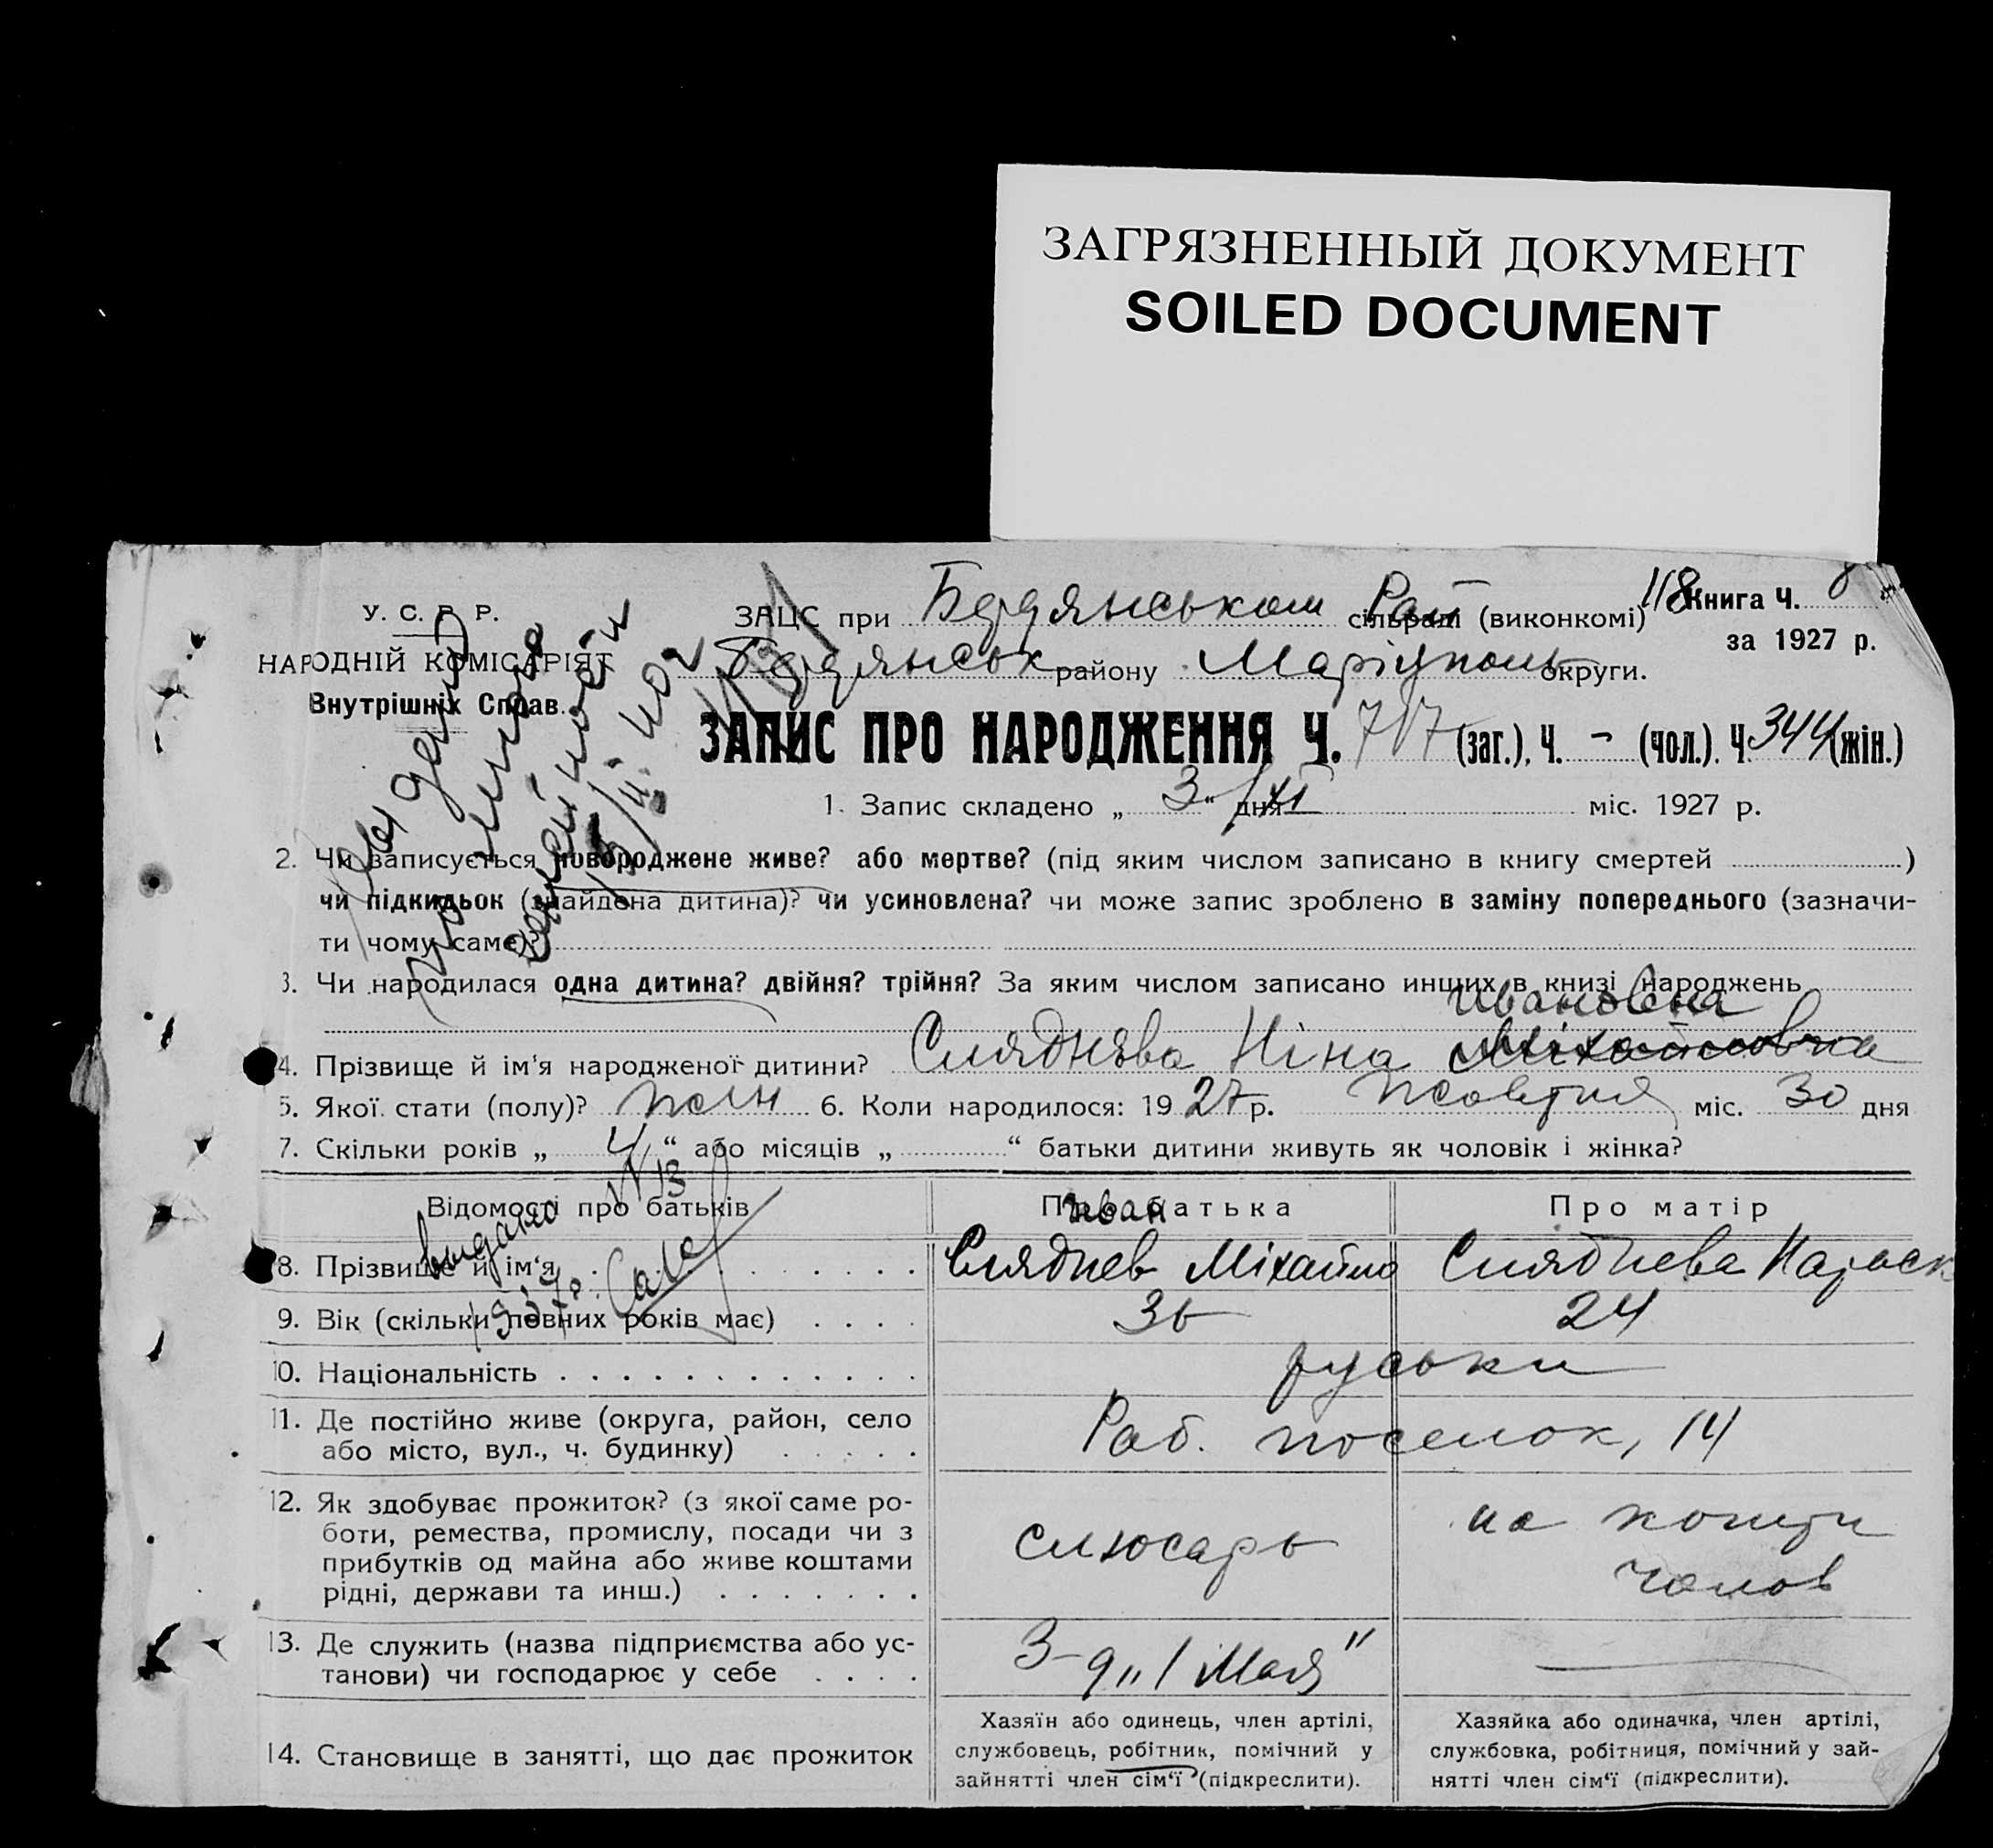 ЗАГРЯЗНЕННЫЙ ДОКУМЕНТ
SOILED DOCUMENT
У. С. Р. Р.
НАРОДНІЙ КОМІСАРІЯТ
Внутрішніх Справ
118 Книга Ч. 8
за 1927 р.
ЗАЦС при Бердянськом Рай сільраді (виконкомі)
Бердянськ району Маріуполь округи.
ЗАПИС ПРО НАРОДЖЕННЯ Ч. 717 (заг.), Ч. - (чол.). Ч. 344 (жін.)
1. Запис складено „ 3 “ дня /XI міс. 1927 р.
2. Чи записується новороджене живе? або мертве? (під яким числом записано в книгу смертей )
чи підкидьок (знайдена дитина)? чи усиновлена? чи може запис зроблено в заміну попереднього (зазначи-
ти чому саме)?
3. Чи народилася одна дитина? двійня? трійня? За яким числом записано инших в книзі народжень
Ивановна
4. Прізвище й ім'я народженої дитини? Сляднєва Ніна Міхайловна
5. Якої стати (полу)? жін 6. Коли народилося: 1927 р. Жовтня міс. 30 дня
7. Скільки років „ 4 “ або місяців „ “ батьки дитини живуть як чоловік і жінка?
Відомості про батьків
Про батька
Про матір
Иван
8. Прізвище й ім'я Сляднев Міхайло Сляднева Параск
9. Вік (скільки повних років має) 36 24
10. Національність руськи
11. Де постійно живе (округа, район, село
або місто, вул., ч. будинку)
Раб. поселок, 14
12. Як здобуває прожиток? (з якої саме ро-
боти, ремества, промислу, посади чи з
прибутків од майна або живе коштами
рідні, держави та инш.)
слюсарь
на кошти
чолов
13. Де служить (назва підприємства або ус-
танови) чи господарює у себе
З-д „1 Мая“
14. Становище в занятті, що дає прожиток
Хазяїн або одинець, член артілі,
службовець, робітник, помічний у
зайнятті член сім'ї (підкреслити).
Хазяйка або одиначка, член артілі,
службовка, робітниця, помічний у зай-
нятті член сім'ї (підкреслити).